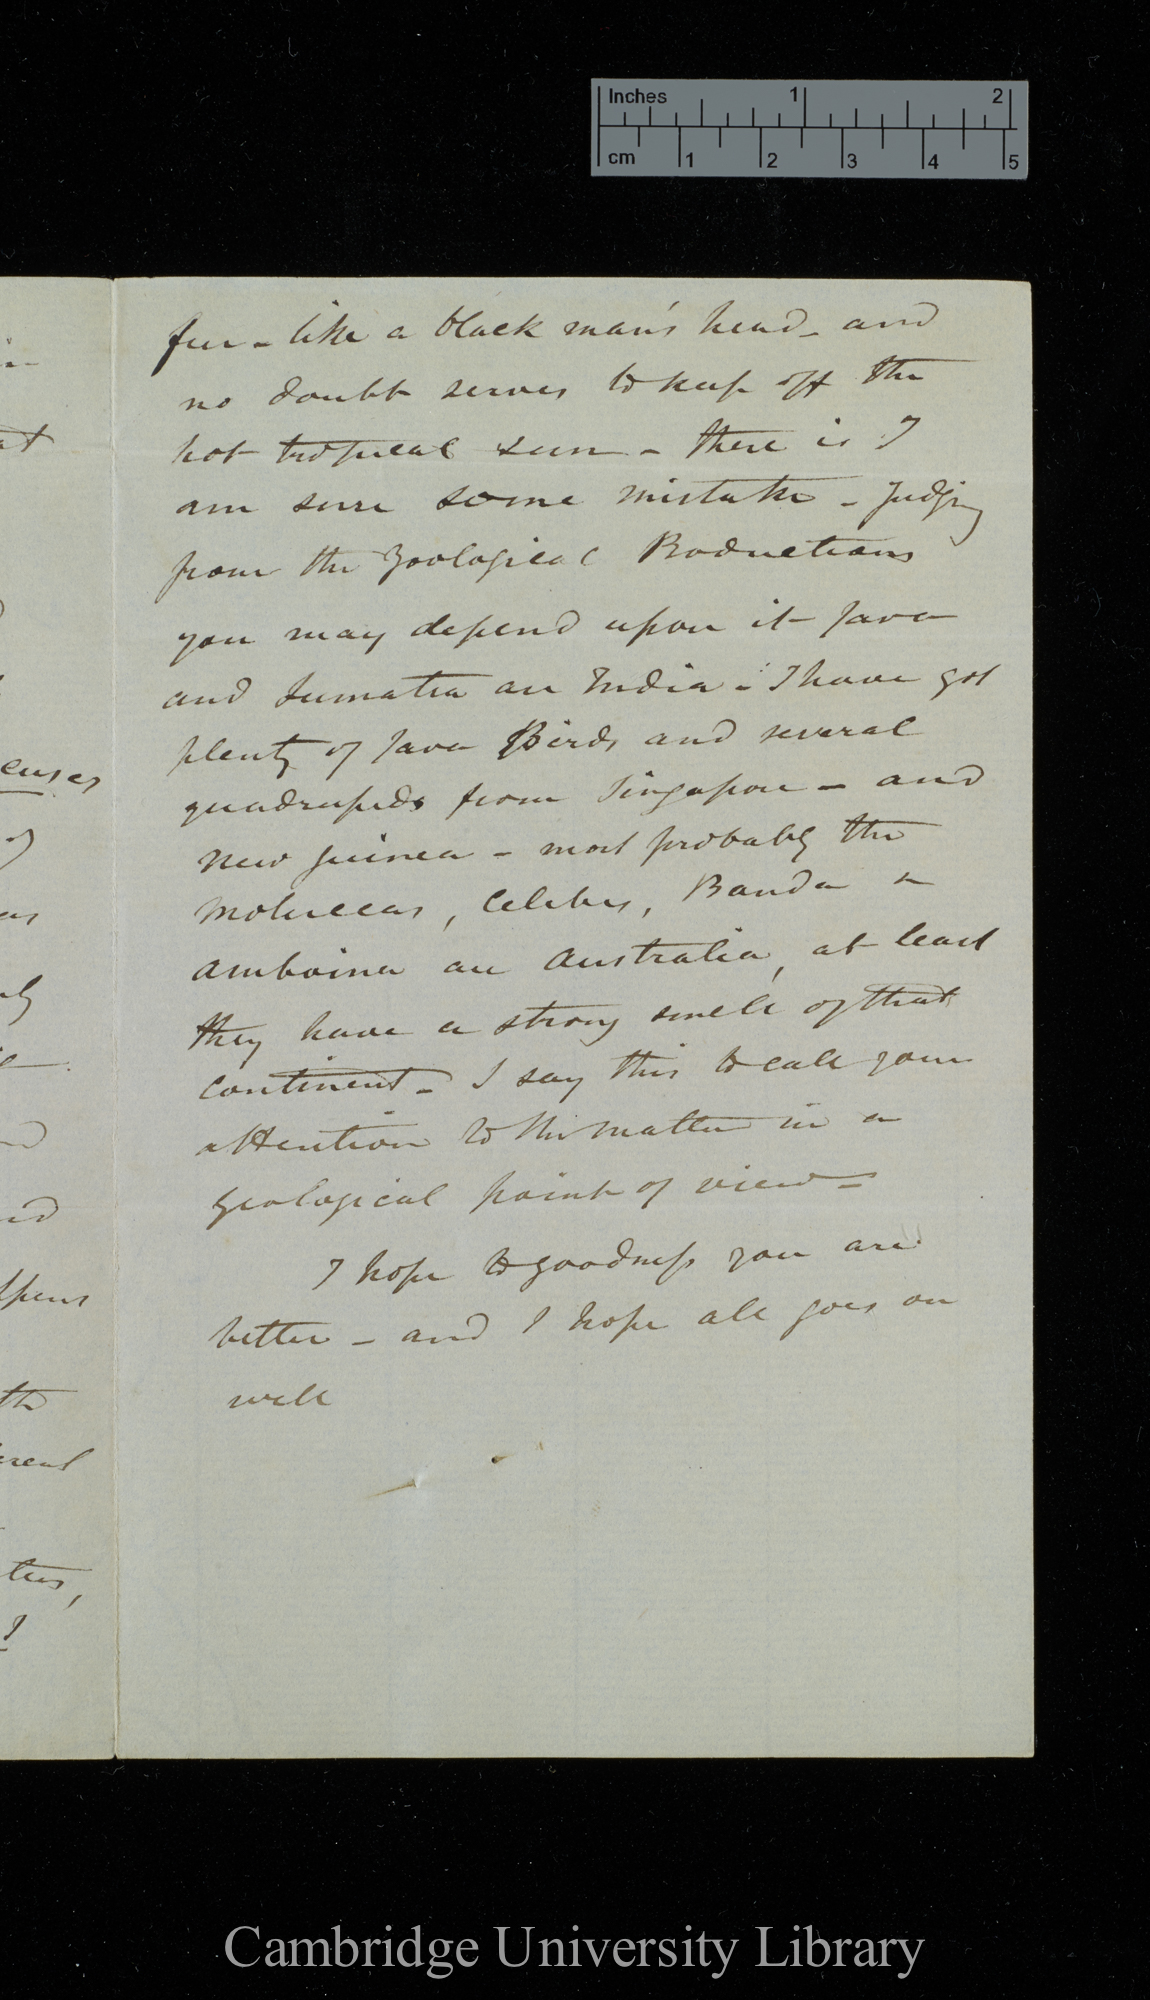 Inches 1 2
cm 1 2 3 4 5
fur - like a black man's head - and
no doubt serves to keep off the
hot tropical sun - there is I
am sure some mistake - Judging
from the Zoological Productions
you may depend upon it Java
and Sumatra are India - I have got
plenty of Java Birds and several
quadrupeds from Singapore - and
New Guinea - most probably the
Moluccas, Celebes, Banda &
Amboina are Australia, at least
they have a strong smell of that
continent - I say this to call your
attention to this matter in a
geological point of view -
I hope to goodness you are
better - and I hope all goes on
well
in-
at
enses
of
as
ly
nd
ppens
th
erent
ters,
I
Cambridge University Library